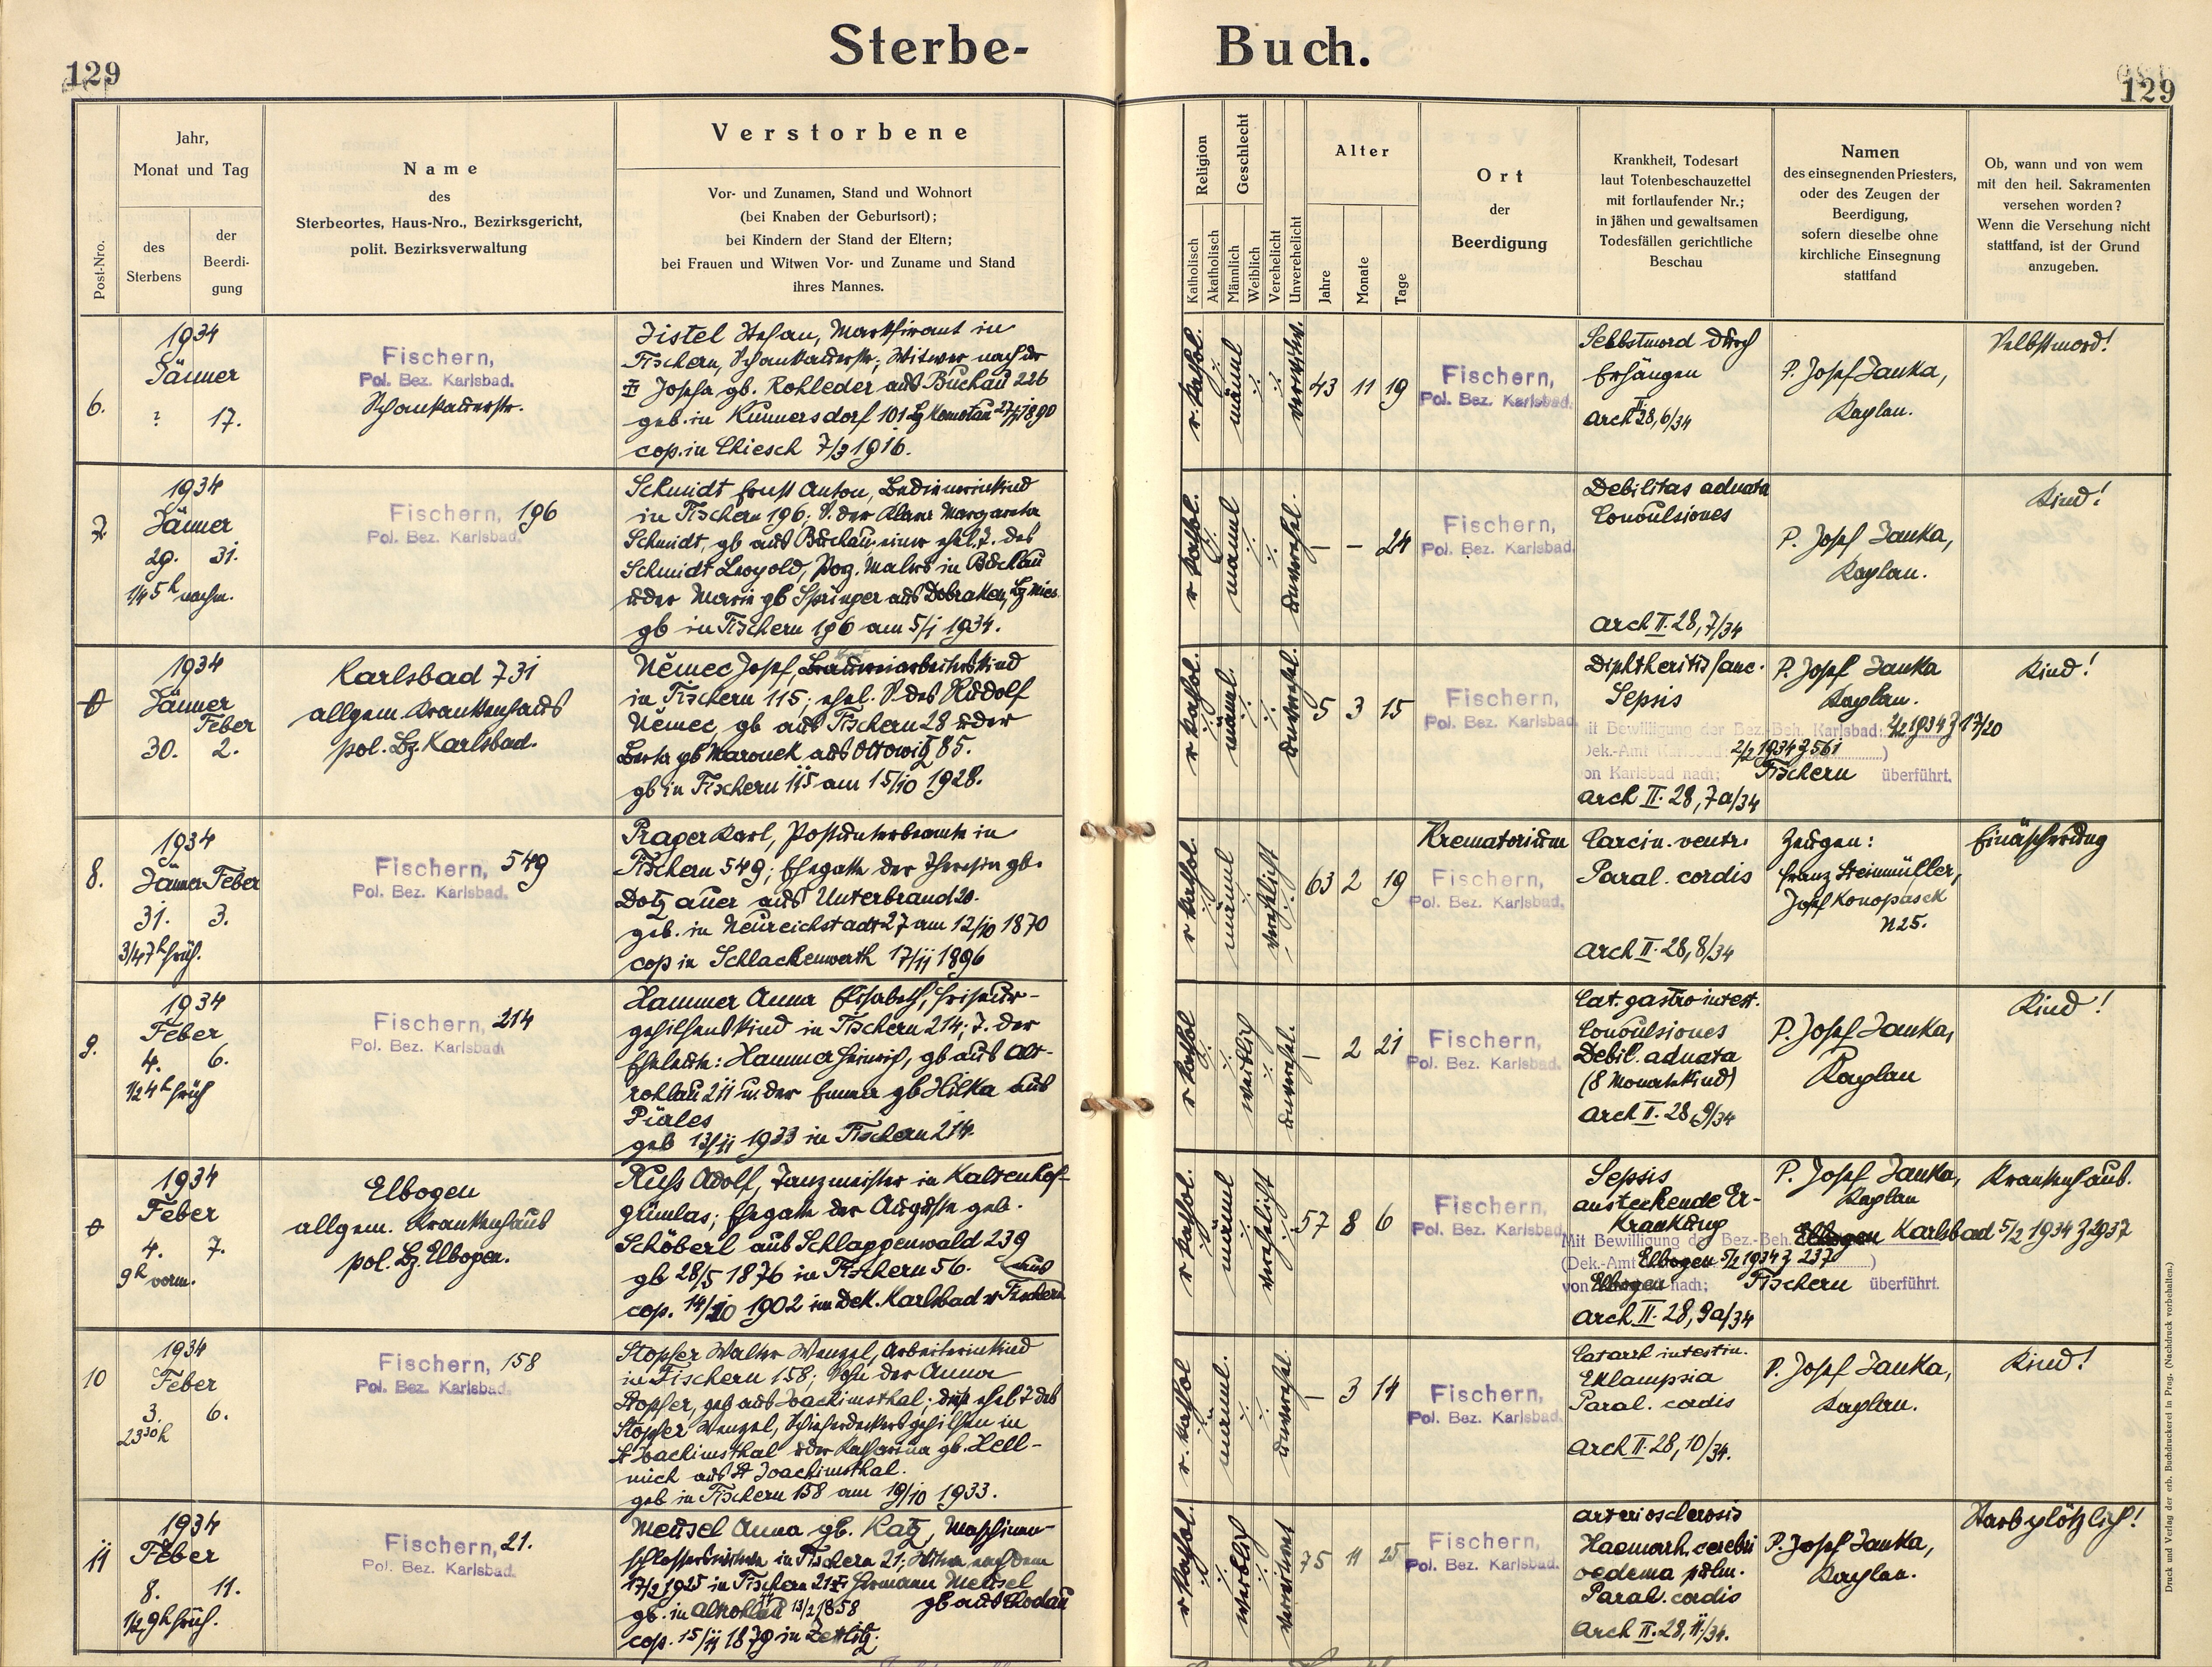 Sterbe-
Buch.
129
129
Post-Nro.
Jahr,
Monat und Tag
des
Sterbens
der
Beerdi-
gung
Name
des
Sterbeortes, Haus-Nro., Bezirksgericht,
polit. Bezirksverwaltung
Verstorbene
Vor- und Zunamen, Stand und Wohnort
(bei Knaben der Geburtsort);
bei Kindern der Stand der Eltern;
bei Frauen und Witwen Vor- und Zuname und Stand
ihres Mannes.
Religion
Katholisch
Akatholisch
Geschlecht
Männlich
Weiblich
Verehelicht
Unverehelicht
Alter
Jahre
Monate
Tage
Ort
der
Beerdigung
Krankheit, Todesart
laut Totenbeschauzettel
mit fortlaufender Nr.;
in jähen und gewaltsamen
Todesfällen gerichtliche
Beschau
Namen
des einsegnenden Priesters,
oder des Zeugen der
Beerdigung,
sofern dieselbe ohne
kirchliche Einsegnung
stattfand
Ob, wann und von wem
mit den heil. Sakramenten
versehen worden?
Wenn die Versehung nicht
stattfand, ist der Grund
anzugeben.
6.
1934
Jänner
? 17.
Fischern,
Pol. Bez. Karlsbad.
Schankauerstr.
Stefan, Marktfirant in
Fischern, Schankauerstr; Witwer nach der
Josefa gb. Rohleder aus Buchau 226
geb. in Kunnersdorf 101 Bz Komotau 27/1 1890
cop. in Chiesch 7/3 1916.
r. kathol.
männl
verwitw.
43 11 19
Fischern,
Pol. Bez. Karlsbad.
Selbstmord durch
Erhängen
Arch II. 28, 6/34
P. Josef Janka,
Kaplan.
Selbstmord!
7.
1934
Jänner
29. 31.
1/4 5h nachm.
Fischern, 196
Pol. Bez. Karlsbad.
Schmidt Ernst Anton, Bedienerinkind
in Fischern 196; S. der Klara Margareta
Schmidt, gb aus Buchau, einer ehel. T. des
Schmidt Leopold, Porz. Malers in Buchau
u der Marie gb Springer aus Dobraken, Bz Mies
gb in Fischern 196 am 5/1 1934.
r kathol.
männl
unverehel.
– – 24
Fischern,
Pol. Bez. Karlsbad.
Debilitas adnata
Convulsiones
Arch II. 28, 7/34
P. Josef Janka,
Kaplan.
Kind!
1934
Jänner
Feber
30. 2.
Karlsbad 731
allgem. Krankenhaus
pol. Bz. Karlsbad.
Němec Josef,
in Fischern 115; ehel. S. des Rudolf
Němec, gb aus Fischern 28 u der
Berta gb Marouek aus Ottowitz 85.
gb in Fischern 115 am 15/10 1928.
r kathol.
männl.
unverehel.
5 3 15
Fischern,
Pol. Bez. Karlsbad.
Diphtheritis fauc.
Sepsis
P. Josef Janka
Kaplan.
Kind!
it Bewilligung der Bez.-Beh. Karlsbad: 2/2 1934 Z 17/20
Dek.-Amt Karlsbad 2/2 1934 Z 561 )
on Karlsbad nach; Fischern überführt.
Arch II. 28, 7a/34
8.
1934
Jänner Feber
31. 3.
3/4 7h früh.
Fischern, 549
Pol. Bez. Karlsbad.
Prager Karl, Postunterbeamte in
Fischern 549; Ehegatte der Theresia gb.
Dotzauer aus Unterbrand 20.
geb. in Neureichstadt 27 am 12/10 1870
cop in Schlackenwerth 17/11 1896
r kathol.
männl
verehelicht
63 2 19
Krematorium
Fischern,
Pol. Bez. Karlsbad.
Carcin. ventr.
Paral. cordis
Arch II. 28, 8/34
Zeugen:
Franz Steinmüller,
Josef Konopasek
N 25.
Einäscherung
9.
1934
Feber
4. 6.
1/2 4h früh
Fischern, 214
Pol. Bez. Karlsbad.
Hammer Anna Elisabeth, Friseur-
gehilfenskind in Fischern 214; T. der
Eheleute: Hammer Heinrich, gb aus Alt-
rohlau 211 u. der Emma gb Hilka aus
Pürles
geb 13/11 1933 in Fischern 214.
r kathol
weiblich
unverehel.
– 2 21
Fischern,
Pol. Bez. Karlsbad.
Cat. gastro intest.
Convulsiones
Debil. adnata
(8 Monatskind)
Arch II. 28, 9/34
P. Josef Janka,
Kaplan
Kind!
1934
Feber
4. 7.
9h vorm.
Elbogen
allgem. Krankenhaus
pol. Bz. Elbogen.
Russ Adolf, Tanzmeister in Kaltenhof-
gümlas; Ehegatte der Auguste geb.
Schöberl aus Schlaggenwald 239
gb 28/5 1876 in Fischern 56.
cop. 14/10 1902 im Dek. Karlsbad aus Fischern
r kathol.
männl
verehelicht
57 8 6
Fischern,
Pol. Bez. Karlsbad.
Sepsis
ansteckende Er-
krankung
P. Josef Janka,
Kaplan
Krankenhaus.
Mit Bewilligung der Bez.-Beh. Elbogen Karlsbad 5/2 1934 Z 2937
(Dek.-Amt Elbogen 5/2 1934 Z 237 )
von Elbogen nach; Fischern überführt.
Arch II. 28, 9a/34
10
1934
Feber
3. 6.
23 30 h
Fischern, 158
Pol. Bez. Karlsbad.
Stopfer Walter Wenzel, Arbeiterinkind
in Fischern 158; Sohn der Anna
Stopfer, geb aus Joachimsthal; diese ehel T des
Stopfer Wenzel, Schieferdeckersgehilfen in
St Joachimsthal u der Katharina gb. Hell-
mich aus St Joachimsthal.
geb in Fischern 158 am 19/10 1933.
r. kathol
männl.
unverehel.
– 3 14
Fischern,
Pol. Bez. Karlsbad.
Catarrh intestin.
Eklampsia
Paral. cordis
Arch II. 28, 10/34.
P. Josef Janka,
Kaplan.
Kind!
11
1934
Feber
8. 11.
1/2 9h früh.
Fischern, 21.
Pol. Bez. Karlsbad.
Meusel Anna gb. Katz, Maschinen-
schlosserswitwe in Fischern 21; Witwe nach dem
17/2 1925 in Fischern 21 Hermann Meusel
gb. in Altrohlau 13/2 1858 gb aus Chodau
cop. 15/11 1879 in Zettlitz.
r kathol.
weiblich
verwitwet
75 11 25
Fischern,
Pol. Bez. Karlsbad.
Arteriosclerosis
Haemorh. cerebri
oedema pulm.
Paral. cordis
Arch II. 28, 11/34.
P. Josef Janka,
Kaplan.
Starb plötzlich!
Druck und Verlag der erb. Buchdruckerei in Prag. (Nachdruck vorbehalten.)